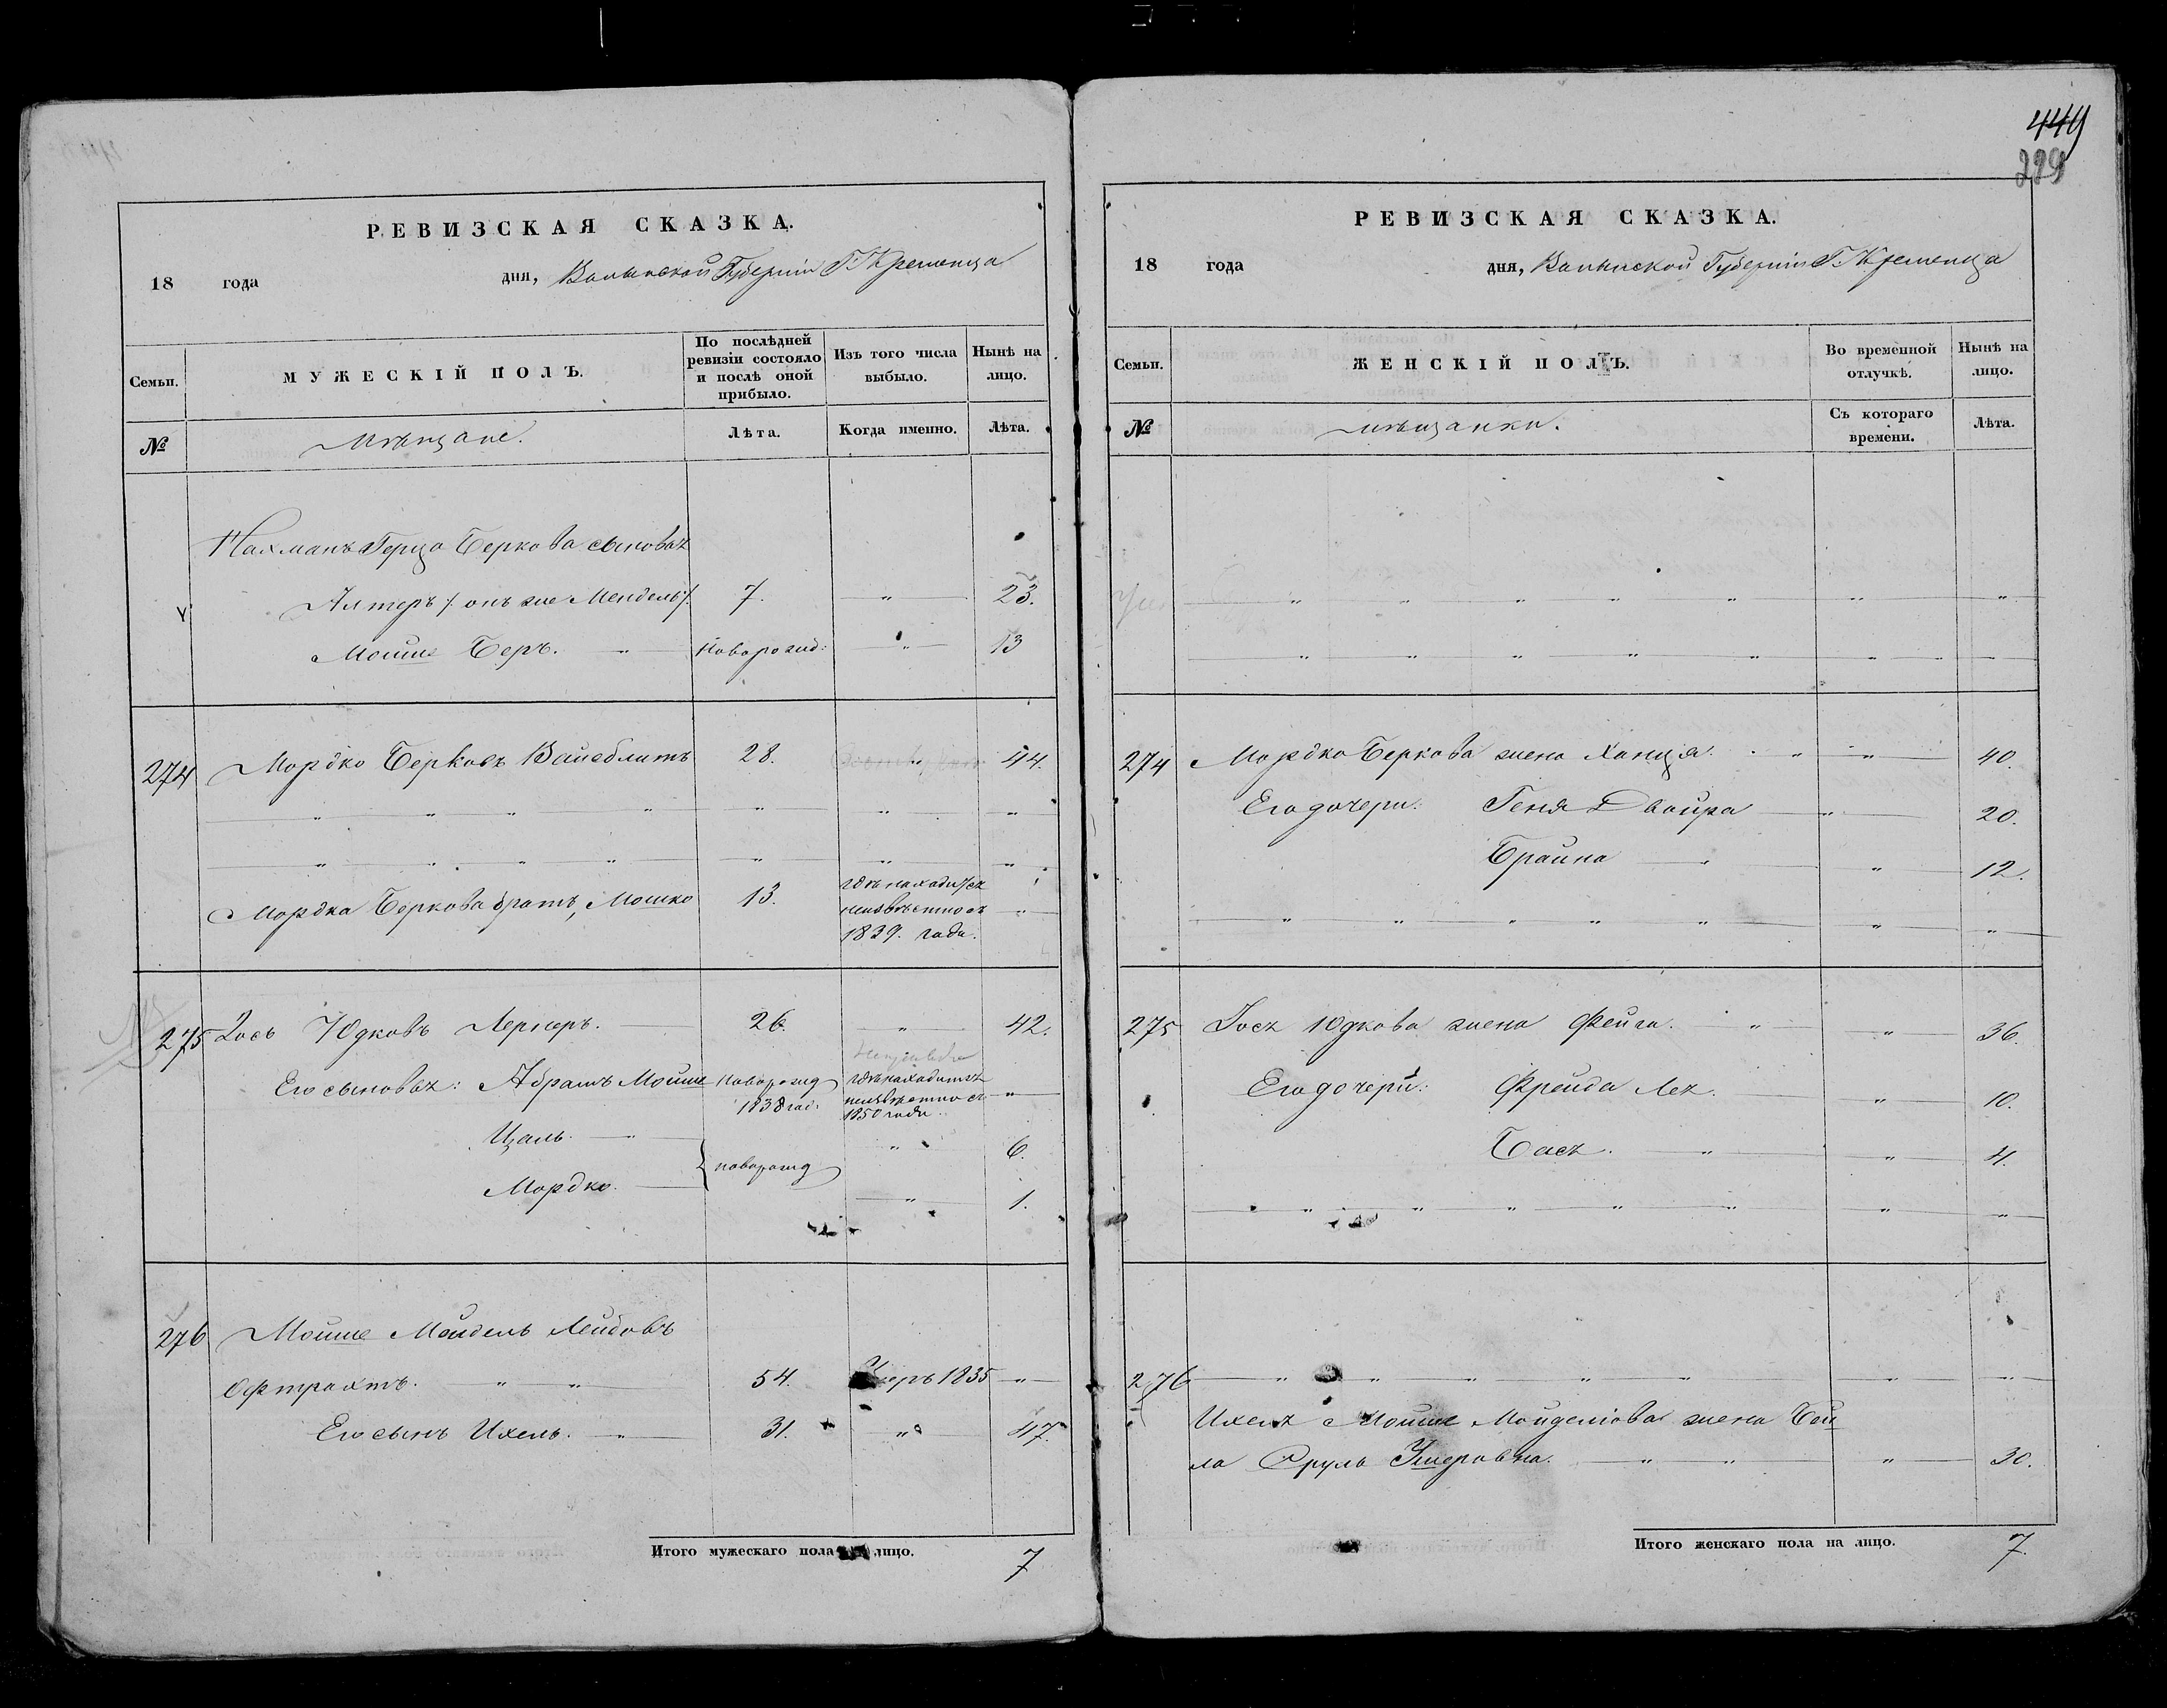 449
229
РЕВИЗСКАЯ СКАЗКА.
18 года дня, Волынской Губерніи Г. Кременца
Семьи. МУЖЕСКІЙ ПОЛЪ. По послѣдней ревизіи состояло и послѣ оной прибыло. Изъ того числа выбыло. Нынѣ на лицо.
№ Мѣщане. Лѣта. Когда именно. Лѣта.
Нахмана Герца Беркова сыновья
Алтеръ /: онъ же Мендель :/ 7. " 23.
Мошие Беръ. " новорожд: " 13
274 Мордко Берковъ Вайсблитъ 28. " 44.
" " " " " " "
" " " " " " "
Мордка Беркова братъ, Мошко 13. гдѣ находится неизвѣстно съ 1839. года. "
275 Іось Юдковъ Лернеръ. 26. " 42.
Его сыновья: Абрамъ Мошие новорожд 1838 год. гдѣ находится неизвѣстно съ 1850 года. "
Цаль. " " 6.
Мордко. новорожд " 1.
276 Мошие Мойдель Лейбовъ
Офтрахтъ. " " 54. Умеръ 1835 "
Его сынъ Ихель. " 31. " 47.
Итого мужескаго пола на лицо. 7
РЕВИЗСКАЯ СКАЗКА.
18 года дня, Волынской Губерніи Г. Кременца
Семьи. ЖЕНСКІЙ ПОЛЪ. Во временной отлучкѣ. Нынѣ на лицо.
№ мѣщанки. Съ котораго времени. Лѣта.
" " " " " " "
" " " " " " "
274 Мордко Беркова жена Ханця. " " 40.
Его дочери: Геня Двойра " 20.
Брайна " " 12.
" " " " " " "
275 Іося Юдкова жена Фейга. " " 36.
Его дочери: Фрейда Лея. " 10.
Бася. " " 4.
" " " " " " "
276 " " " " " " "
Ихеля Мошие Мойделова жена Бей
ла Сруль Умеровна. " " " 30.
Итого женскаго пола на лицо. 7.